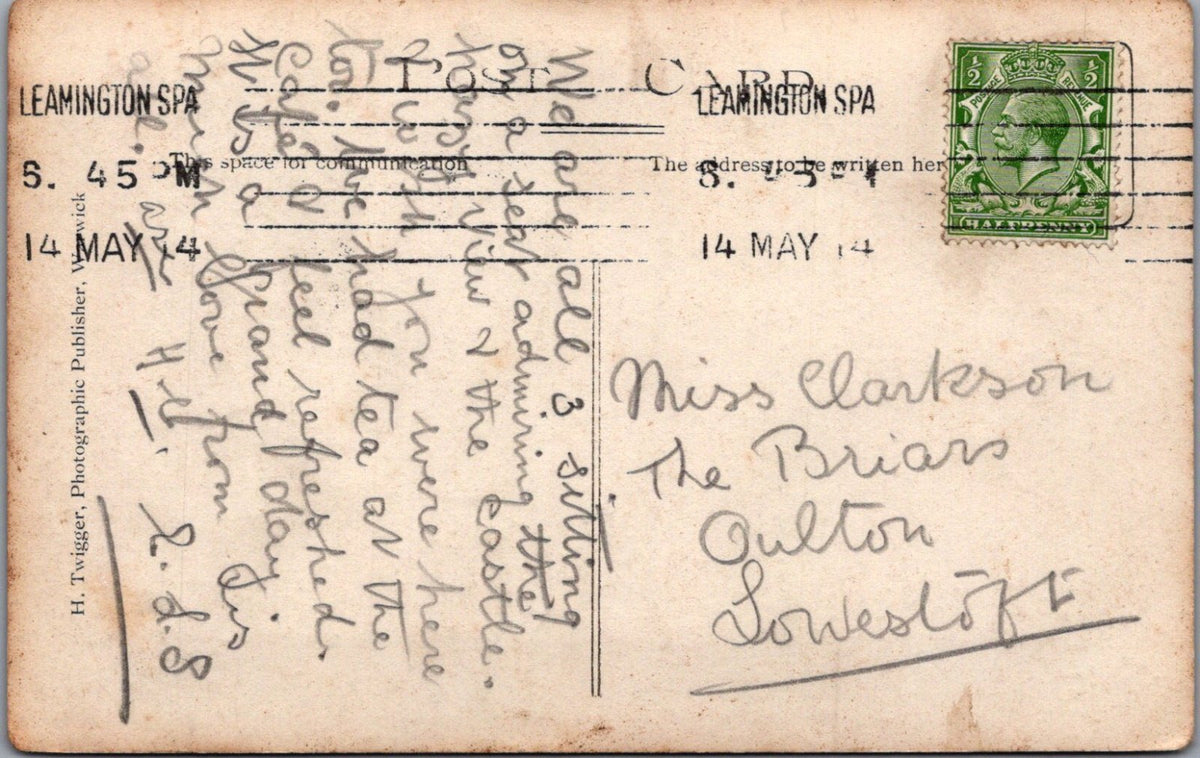 POST CARD
This space for communication
The address to be written her
LEAMINGTON SPA
8. 45 PM
14 MAY 14
LEAMINGTON SPA
8. 45 PM
14 MAY 14
½ ½
POSTAGE REVENUE
HALFPENNY
H. Twigger, Photographic Publisher, Warwick
We are all 3 sitting
on a seat admiring the
view & the castle.
I wish you were here
too. have had tea at the
Café & feel refreshed.
It is a grand day
Much love from
L. S. S
Miss Clarkson
The Briars
Oulton
Lowestoft